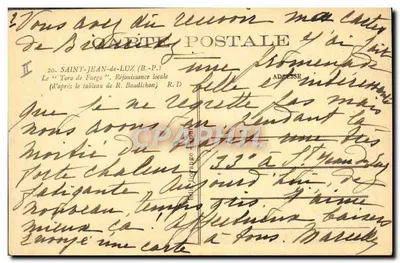 Vous avez dû recevoir ma carte
de Biarritz J'ai fait
CARTE POSTALE
20. SAINT-JEAN-de-LUZ (B.-P.)
Le "Toro de Fuego". Réjouissance locale
(d'après le tableau de R. Baudichan) R. D
ADRESSE
II
une promenade
belle et intéressante
que je ne regrette pas mais
nous avons eu pendant la
moitié du une très
forte chaleur 33° à St Jean de Luz
fatigante. Aujourd'hui, de
nouveau, temps gris. J'aime
mieux ça. Affectueux baisers
à tous. Marcelle
Envoyé une carte
CPARAMA